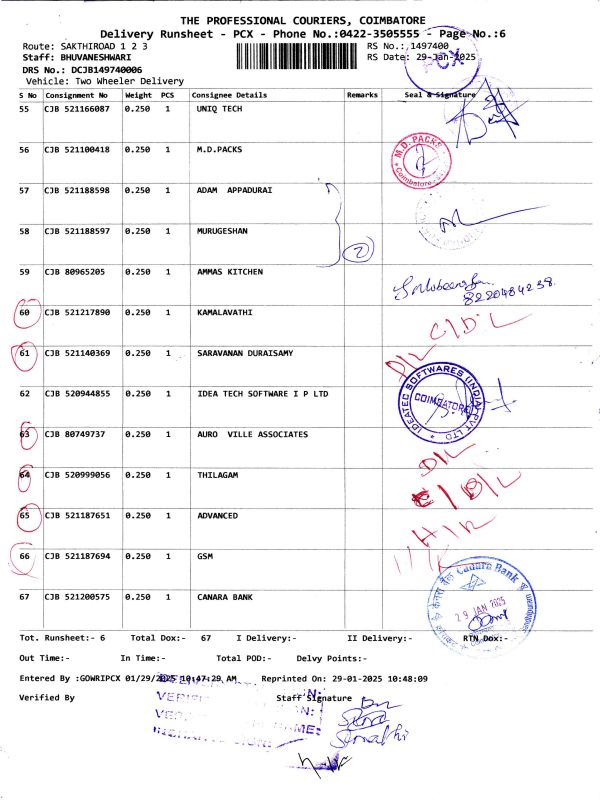 THE PROFESSIONAL COURIERS, COIMBATORE
Delivery Runsheet - PCX - Phone No.:0422-3505555 - Page No.:6
Route: SAKTHIROAD 1 2 3 RS No.:1497400
Staff: BHUVANESHWARI RS Date: 29-Jan-2025
PCX
DRS No.: DCJB149740006
Vehicle: Two Wheeler Delivery
S No Consignment No Weight PCS Consignee Details Remarks Seal & Signature
55 CJB 521166087 0.250 1 UNIQ TECH
56 CJB 521100418 0.250 1 M.D.PACKS
M.D. PACKS Coimbatore
57 CJB 521188598 0.250 1 ADAM APPADURAI
58 CJB 521188597 0.250 1 MURUGESHAN
2
59 CJB 80965205 0.250 1 AMMAS KITCHEN
8220484238
60 CJB 521217890 0.250 1 KAMALAVATHI
C/D/L
61 CJB 521140369 0.250 1 SARAVANAN DURAISAMY
D/L
62 CJB 520944855 0.250 1 IDEA TECH SOFTWARE I P LTD
IDEATEC SOFTWARES (INDIA) PVT LTD
COIMBATORE
63 CJB 80749737 0.250 1 AURO VILLE ASSOCIATES
D/L
64 CJB 520999056 0.250 1 THILAGAM
65 CJB 521187651 0.250 1 ADVANCED
66 CJB 521187694 0.250 1 GSM
67 CJB 521200575 0.250 1 CANARA BANK
Canara Bank
29 JAN 2025
Tot. Runsheet:- 6 Total Dox:- 67 I Delivery:- II Delivery:- RTN Dox:-
Out Time:- In Time:- Total POD:- Delvy Points:-
Entered By :GOWRIPCX 01/29/2025 10:47:29 AM Reprinted On: 29-01-2025 10:48:09
Verified By Staff Signature